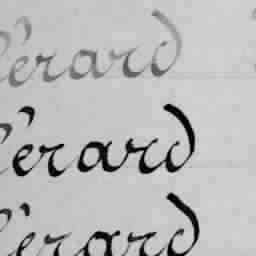 l'érard
l'érard
l'érard